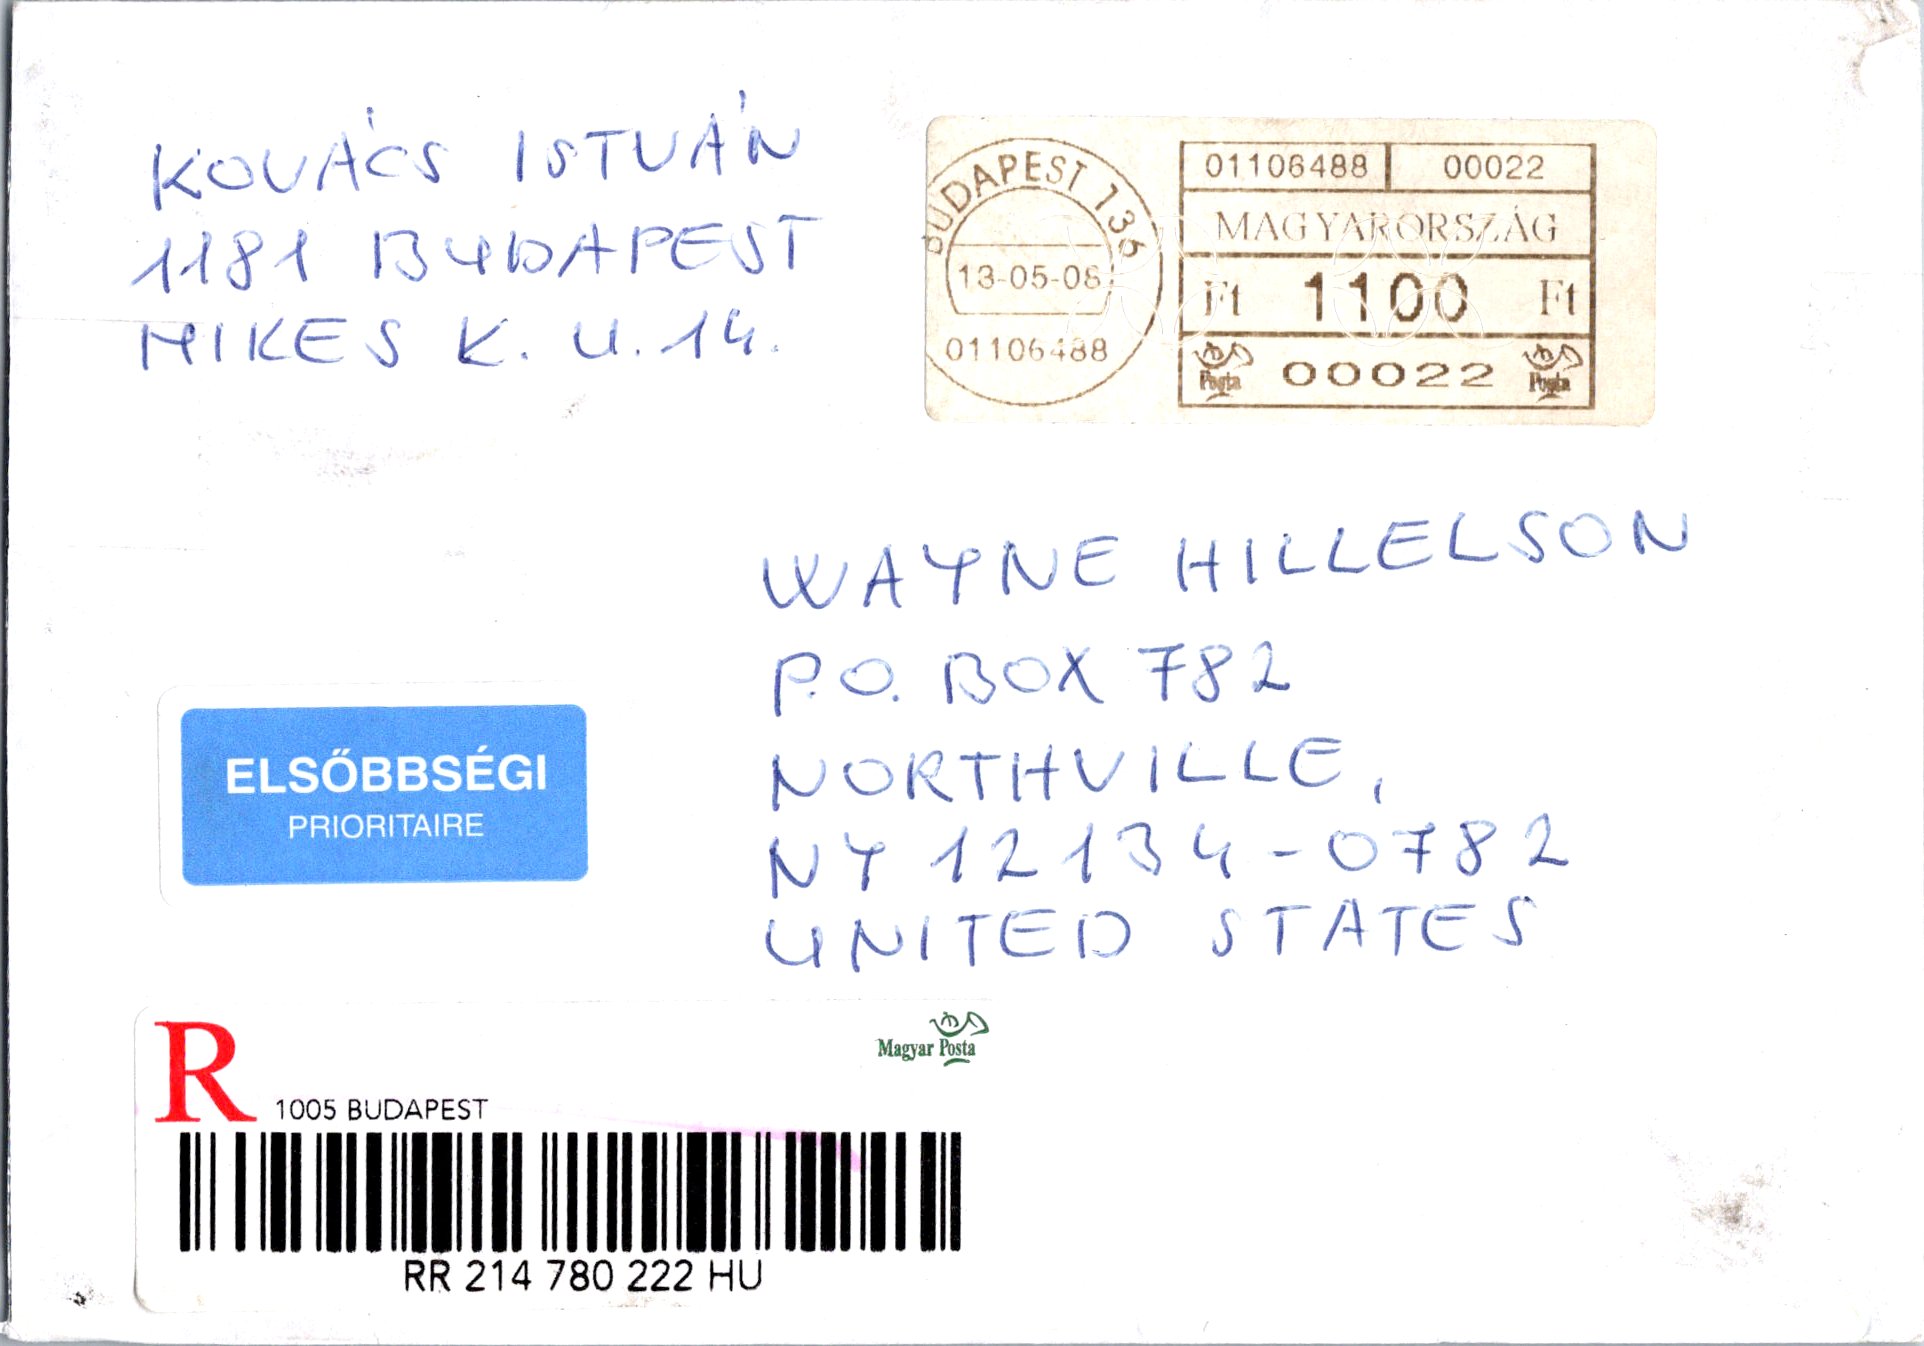 KOVÁCS ISTVÁN
1181 BUDAPEST
MIKES K. U. 14.
BUDAPEST 136
13-05-08
01106488
01106488 00022
MAGYARORSZÁG
Ft 1100 Ft
Posta 00022 Posta
WAYNE HILLELSON
P.O. BOX 782
NORTHVILLE,
NY 12134-0782
UNITED STATES
ELSŐBBSÉGI
PRIORITAIRE
R
Magyar Posta
1005 BUDAPEST
RR 214 780 222 HU